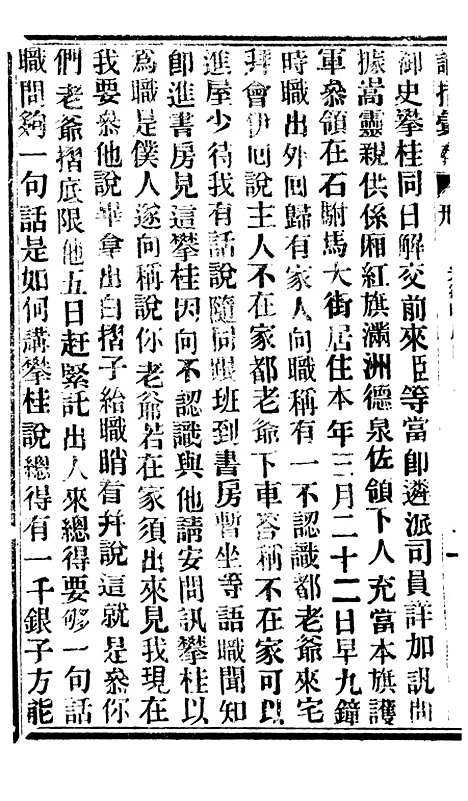 御史攀桂同日解交前來臣等當即遴派司員詳加訊問
據嵩靈親供係廂紅旗滿洲德泉佐領下人充當本旗護
軍叅領在石駙馬大街居住本年三月二十二日早九鐘
時職出外回歸有家人向職稱有一不認識都老爺來宅
拜會伊回說主人不在家都老爺下車荅稱不在家可以
進屋少待我有話說隨同跟班到書房暫坐等語職聞知
即進書房見這攀桂因向不認識與他請安問訊攀桂以
爲職是僕人遂向稱說你老爺若在家須出來見我現在
我要叅他說畢拿出白摺子給職睄看幷說這就是叅你
們老爺摺底限他五日赶緊託出人來總得要够一句話
職問夠一句話是如何講攀桂說總得有一千銀子方能